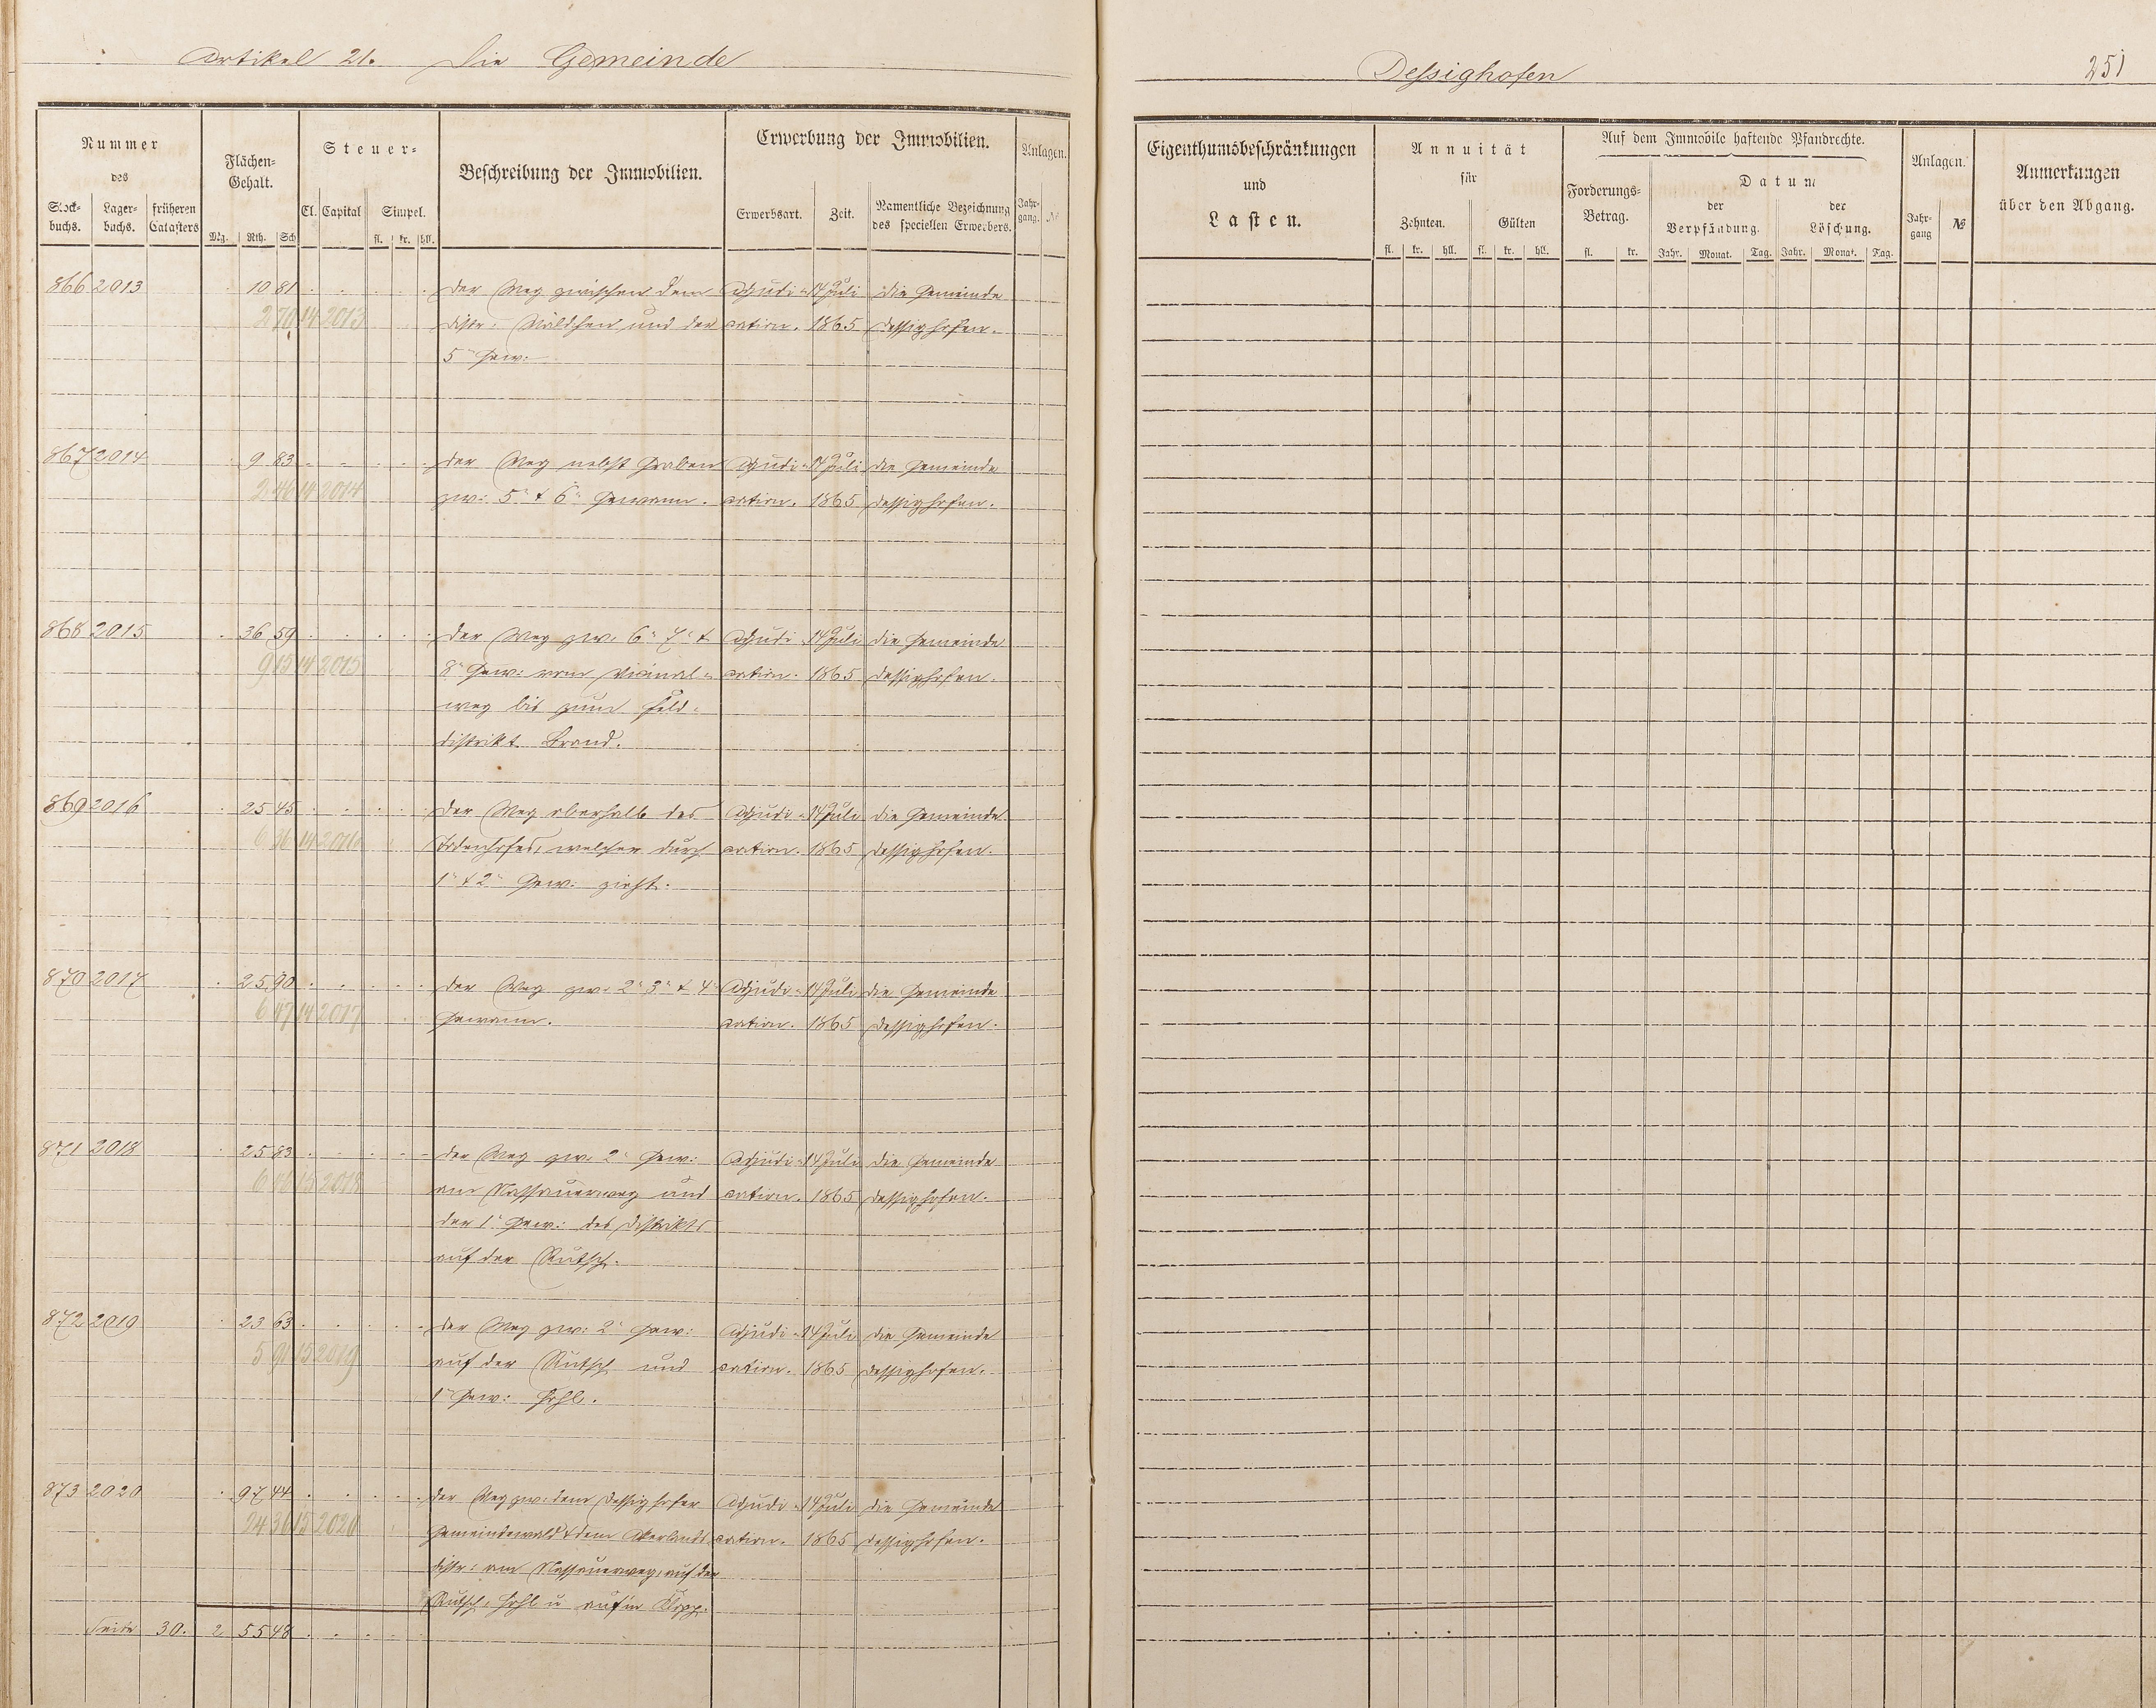 Artikel 21. Die Gemeinde
Dessighofen
251
Nummer des
Stockbuchs. Lagerbuchs. früheren Catasters
Flächen-Gehalt.
Mrg. Rth. Sch
Steuer-
Cl. Capital Simpel.
fl. kr. hll.
Beschreibung der Immobilien.
Erwerbung der Immobilien.
Erwerbsart. Zeit. Namentliche Bezeichnung des speciellen Erwerbers.
Anlagen.
Jahr-gang. №
Eigenthumsbeschränkungen
und
Lasten.
Annuität
für
Zehnten. Gülten
fl. kr. hll. fl. kr. hll.
Auf dem Immobile haftende Pfandrechte.
Forderungs-Betrag.
fl. kr.
Datum
der Verpfändung. der Löschung.
Jahr. Monat. Tag. Jahr. Monat. Tag.
Anlagen.
Jahr-gang №
Anmerkungen
über den Abgang.
866 2013 . 10 81 . . . . . der Weg zwischen dem Adjudi- 14 Juli die Gemeinde
2 70 14 2013 distr: Wäldchen und der cation. 1865 Dessighofen.
5r Gew:
867 2014 . 9 83 . . . . . der Weg nebst Graben Adjudi- 14 Juli die Gemeinde
2 46 14 2014 zw: 5r & 6r Gewann. cation. 1865 Dessighofen.
868 2015 . 36 59 . . . . . der Weg zw. 6r 7r & Adjudi- 14 Juli die Gemeinde
9 15 14 2015 8r Gew: vom Vicinal- cation. 1865 Dessighofen.
weg bis zum Feld-
distrikt Brand.
869 2016 . 25 45 . . . . . der Weg oberhalb des Adjudi- 14 Juli die Gemeinde
6 36 14 2016 welcher durch cation. 1865 Dessighofen.
1r & 2r Gew: zieht.
870 2017 . 25 90 . . . . . der Weg zw. 2r 3r & 4r Adjudi- 14 Juli die Gemeinde
6 47 14 2017 Gewann. cation. 1865 Dessighofen.
871 2018 . 25 83 . . . . . der Weg zw. 2r Gew: Adjudi- 14 Juli die Gemeinde
15 2018 am Nassauerweg und cation. 1865 Dessighofen.
der 1r Gew: des Distrikts
auf der Rutsch.
872 2019 . 23 63 . . . . . der Weg zw: 2r Gew: Adjudi- 14 Juli die Gemeinde
5 91 15 2019 auf der Rutsch und cation. 1865 Dessighofen.
1r Gew: Hohl.
873 2020 . 97 44 . . . . . der Weg zw: dem Dessighofer Adjudi- 14 Juli die Gemeinde
24 36 15 2020 Gemeindewald & dem Akerlands cation. 1865 Dessighofen.
distr: am Nassauerweg, auf der
Rutsch, Hohl u auf'm Klopp.
Seite 30. 2 55 48 . . . .
. . .